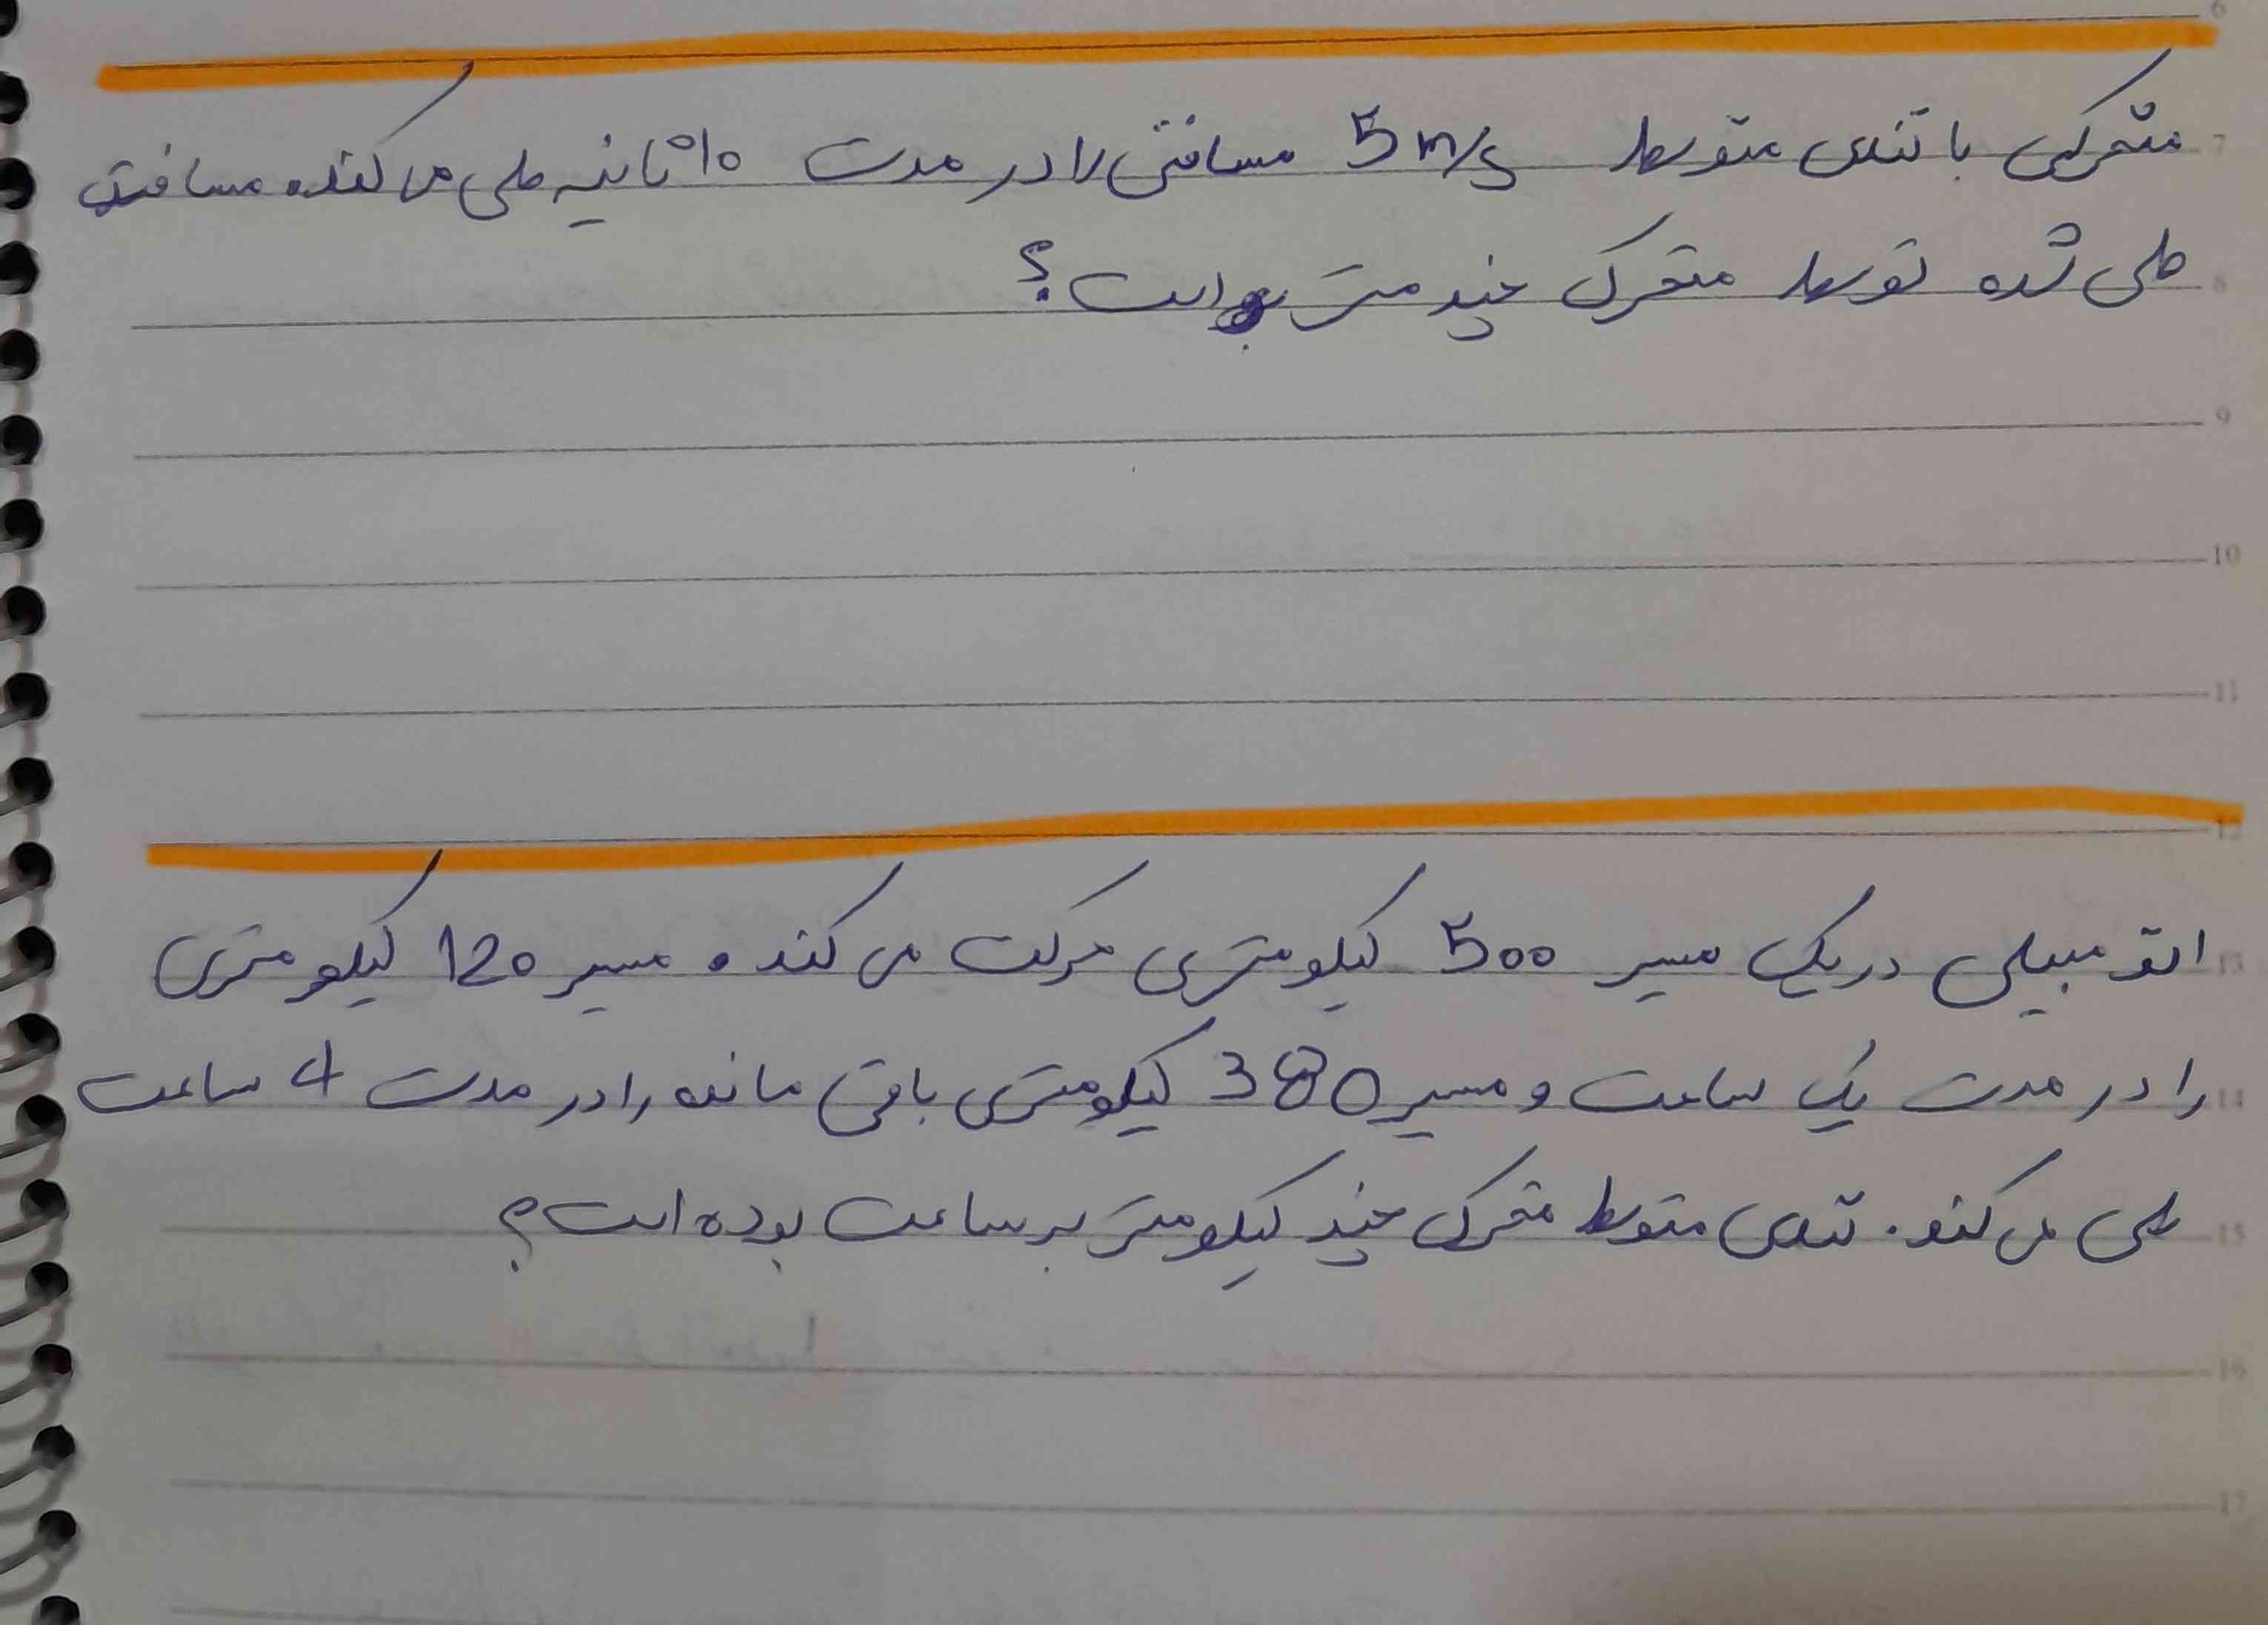 متحرکی با تندی متوسط 5 m/s مسافتی را در مدت 10 ثانیه طی می کند. مسافت
طی شده توسط متحرک چند متر است؟
اتومبیلی در یک مسیر 500 کیلومتری حرکت می کند. مسیر 120 کیلومتری
را در مدت یک ساعت و مسیر 380 کیلومتری باقی مانده را در مدت 4 ساعت
طی می کند. تندی متوسط متحرک چند کیلومتر بر ساعت بوده است؟
6
7
8
9
10
11
12
13
14
15
16
17